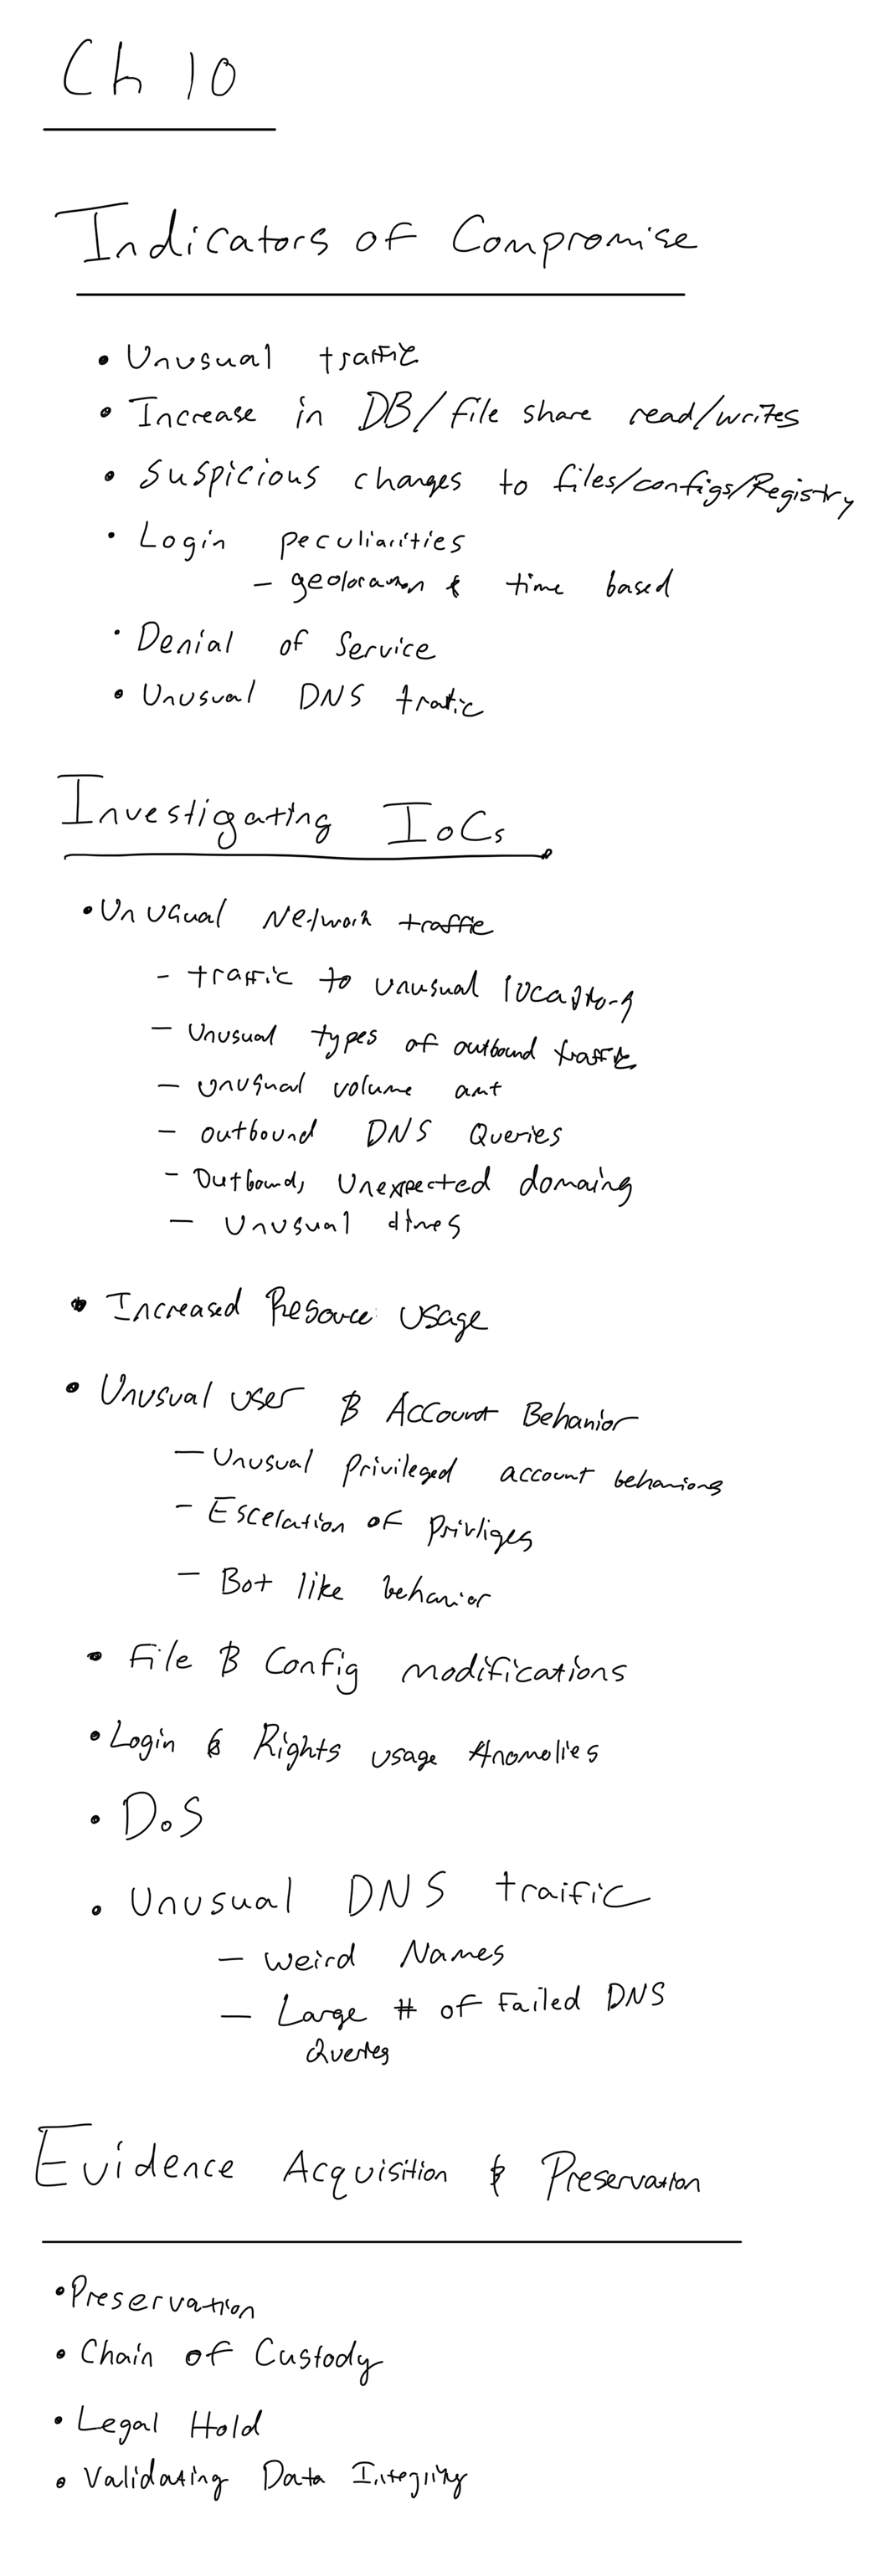 Ch 10
Indicators of Compromise
• Unusual traffic
• Increase in DB/file share read/writes
• Suspicious changes to files/configs/Registry
• Login peculiarities
- geolocation & time based
• Denial of Service
• Unusual DNS trafic
Investigating IoCs
• Unusual Network traffic
- traffic to unusual locations
- Unusual types of outbound traffic
- unusual volume amt
- outbound DNS Queries
- Outbound, Unexpected domains
- Unusual times
• Increased Resource Usage
• Unusual user & Account Behavior
- Unusual Privileged account behaviors
- Escelation of Privliges
- Bot like behavior
• File & Config modifications
• Login & Rights usage Anomolies
• DoS
• Unusual DNS traffic
- Weird Names
- Large # of Failed DNS
Queries
Evidence Acquisition & Preservation
• Preservation
• Chain of Custody
• Legal Hold
• Validating Data Integrity